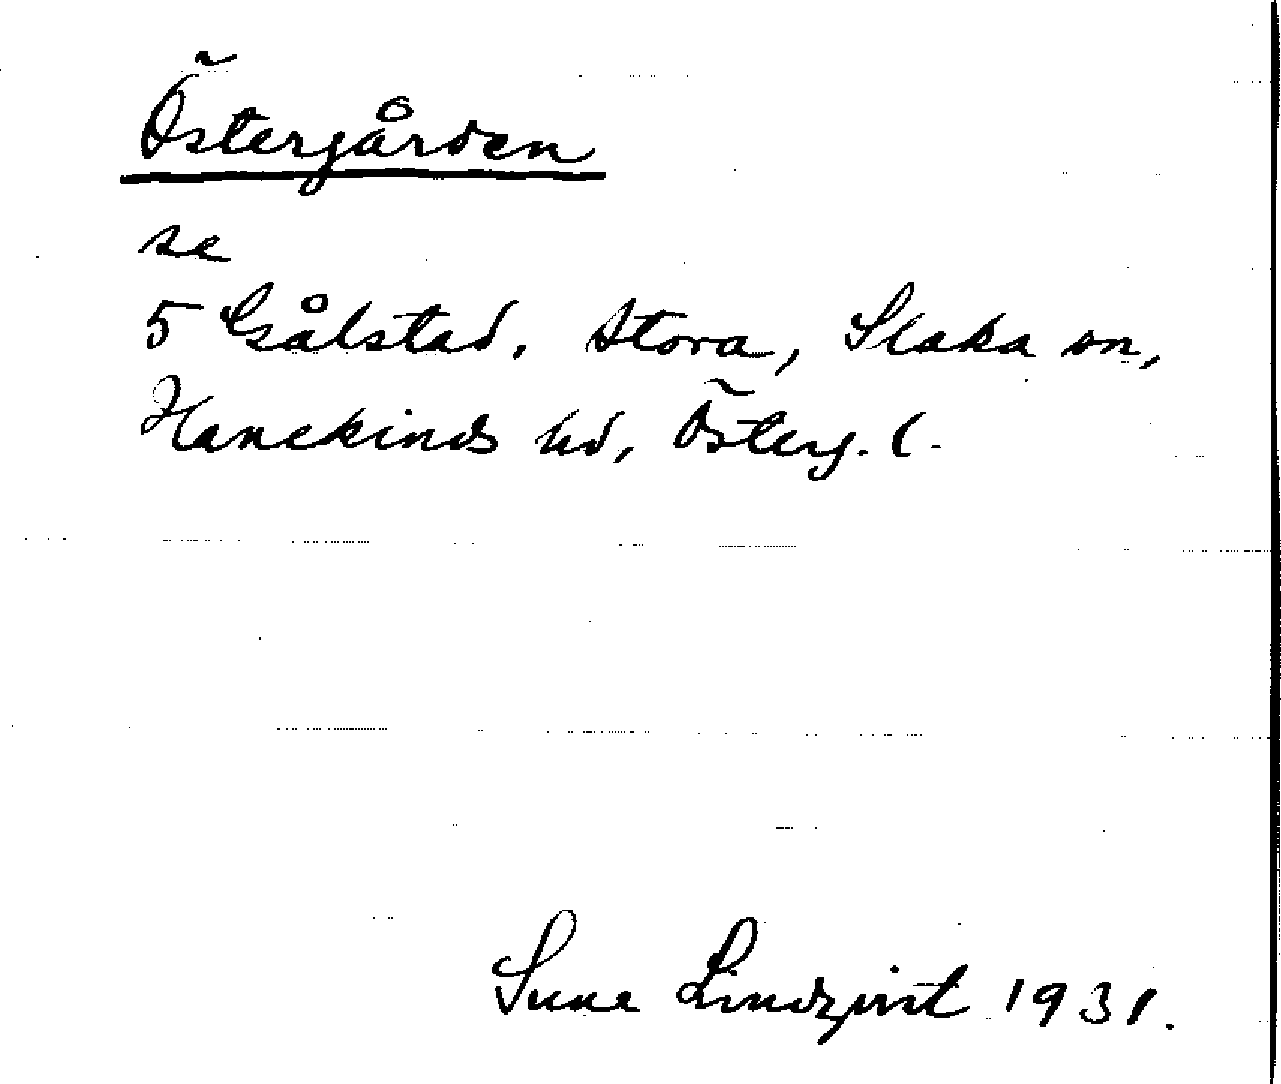 Östergården
se
5 Gålstad, Stora, Slaka sn,
Hanekinds hd, Österg. l.
Sune Lindqvist 1931.